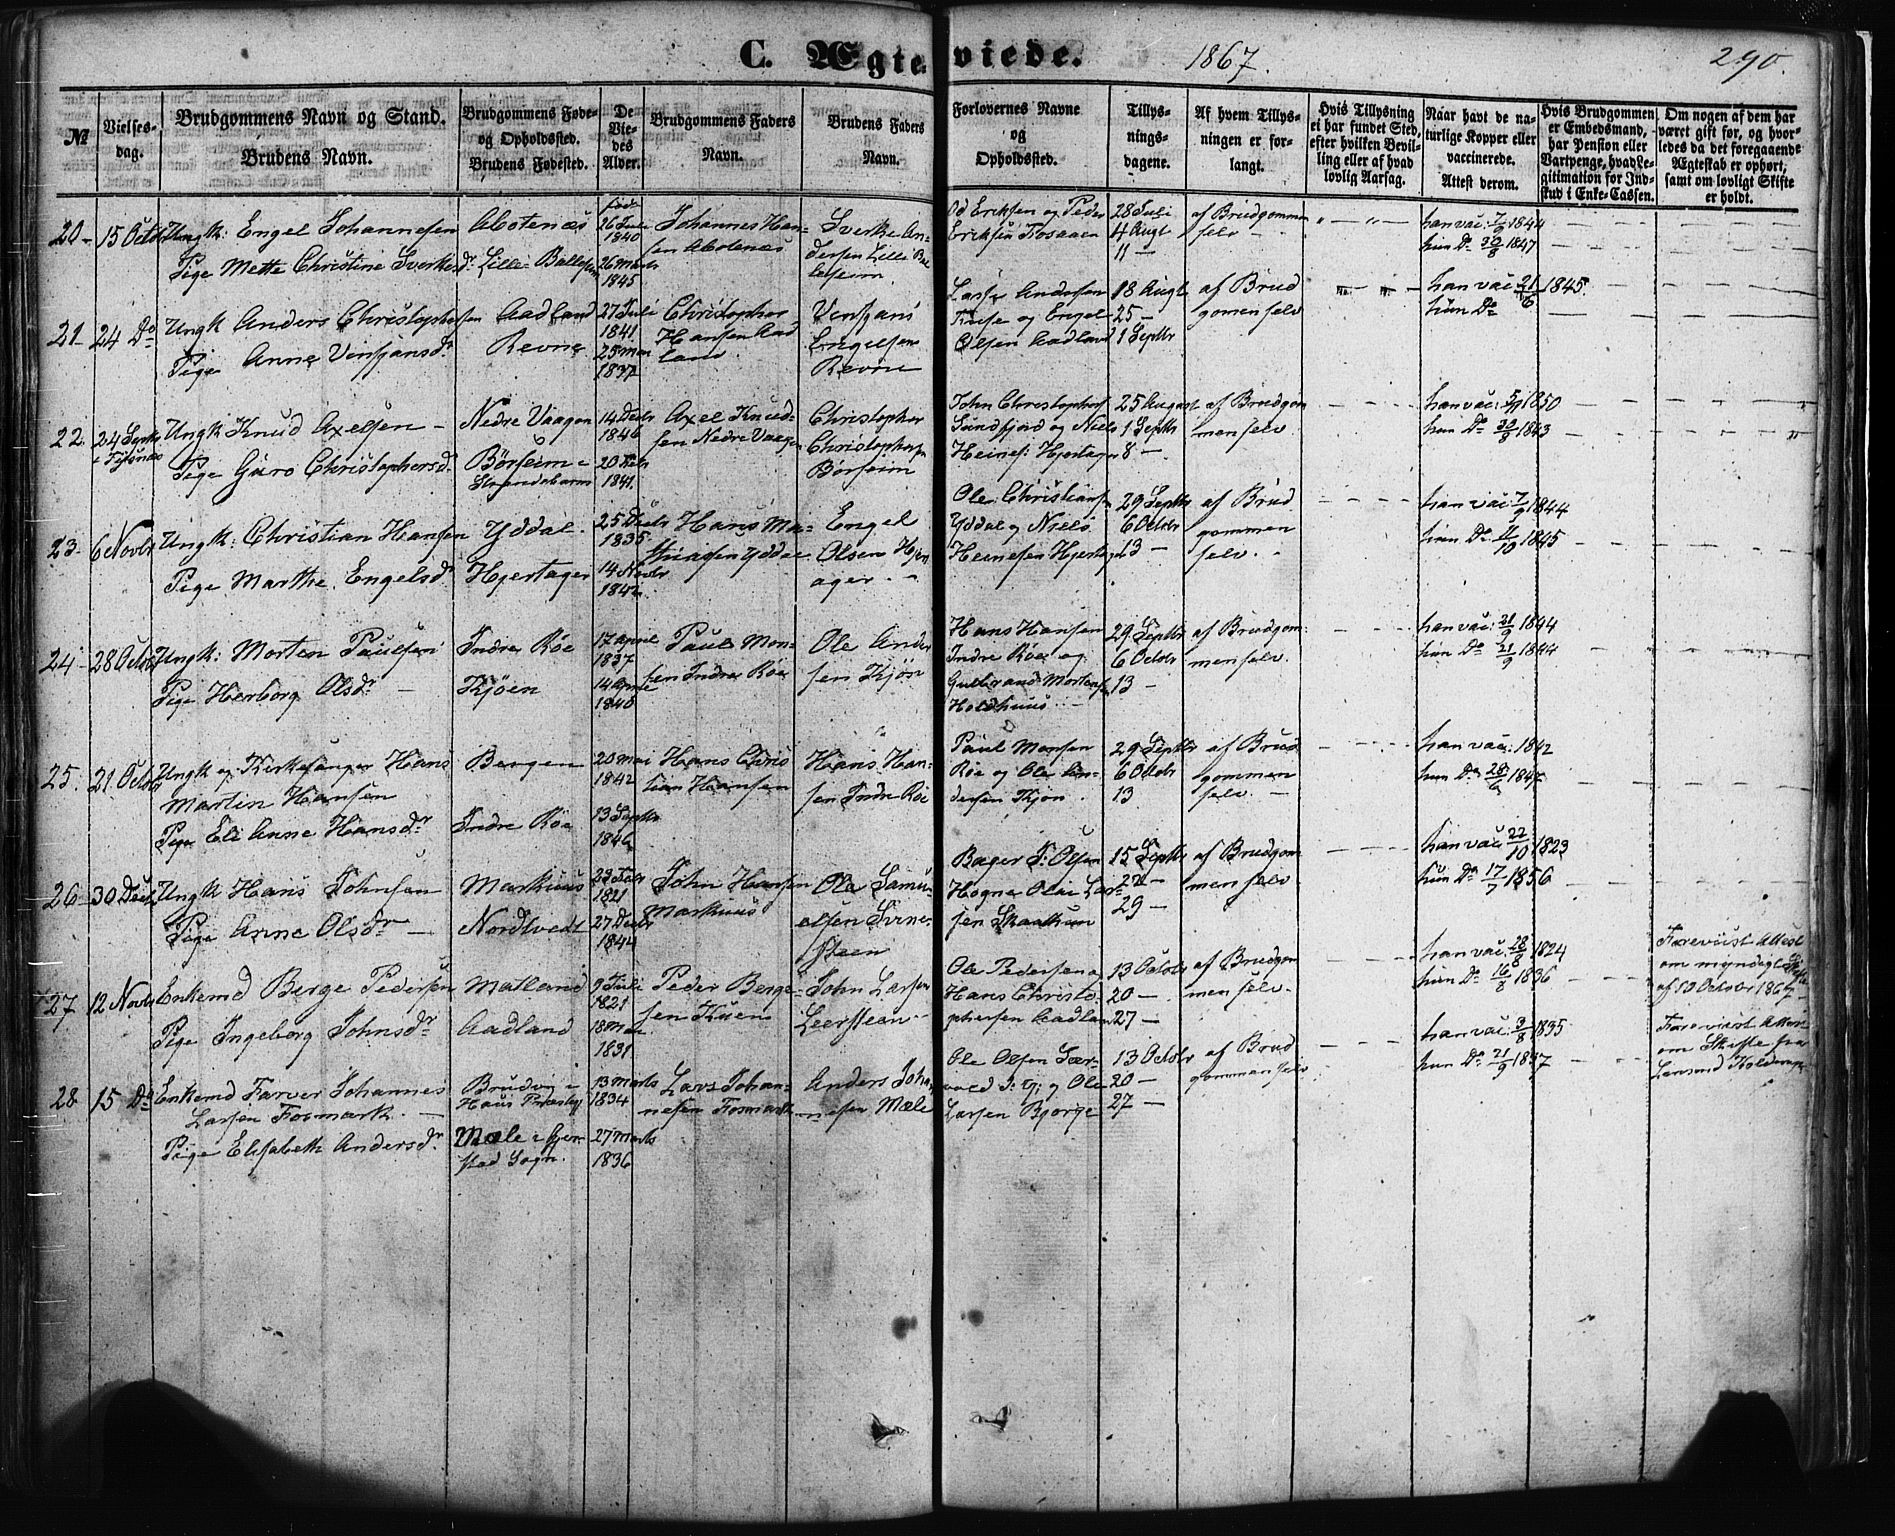 C. Ægteviede. 1867. 290.
№
Vielses-dag.
Brudgommens Navn og Stand.
Brudens Navn.
Brudgommens Føde- og Opholdssted.
Brudens Fødested.
De Viedes Alder.
Brudgommens Faders Navn.
Brudens Faders Navn.
Forlovernes Navne og Opholdssted.
Tillysningsdagene.
Af hvem Tillysningen er forlangt.
Hvis Tillysning ei har fundet Sted, efter hvilken Bevilling eller af hvad lovlig Aarsag.
Naar havt de naturlige Kopper eller vaccinerede.
Attest derom.
Hvis Brudgommen er Embedsmand, har Pension eller Vartpenge, hvad Legitimation for Indskud i Enke-Cassen.
Om nogen af dem har været gift før, og hvorledes da det foregaaende Ægteskab er ophørt, samt om lovligt Skifte er holdt.
20 - 15 Octbr Ungk: Engel Johannesen
Pige Mette Christine Sverkesdr
født 26 Juli 1840
26 Marts 1845
Johannes Hansen
Sverke Andersen Lille
Od Eriksen og Peder Eriksen
28 Juli
4 Augt
11 —
af Brudgommen selv
han vac: 7/9 1844
hun Do 30/8 1847
21 - 24 Do Ungk Anders Christophersen
Pige Anne Vinsjansdr
Aadland
Revne
27 Juli 1841
25 Mai 1837
Christopher Hansen Aadland
Vinsjans Engelsen Revne
Lasse Andersen og Engel Olsen Aadland
18 Augt
25 —
1 Septbr
af Brudgomen selv
han vac 21/6 1845.
hun Do
22. 24 Septbr Ungk Knud Axelsen -
Pige Guro Christophersdr
Nedre Vaagen
Børseim i Strandebarm
14 Decbr 1846
20 1841.
Axel Knudsen Nedre Vaagen
Christopher Christophersen Børseim
John Christophers Sundfjord og Niels Heines: Hjertager
25 August
1 Septbr
8 —
af Brudgommen selv
han vac: 5/9 1850
hun Do 30/8 1843
23 - 6 Novbr Ungk: Christian Hansen
Pige Marthe Engelsdr
Yddal
Hjertager
25 Decbr 1835
14 Novbr 1842
Hans Mathiasen Yddal
Engel Olsen Hjertager
Ole Christians Yddal og Niels Heinesen Hjertager
29 Septbr
6 Octobr
13 —
af Brudgommen selv
han vac 7/9 1844
hun Do 11/10 1845
24 - 28 Octbr Ungk: Morten Paulsen
Pige Herborg Olsdr —
Indre Røe
Kjøen
17 April 1837
14 April 1840
Paul Monsen Indre Røe
Ole Andersen Kjøn
Hans Hansen Indre Røe og Gulbrand Mortens Holdhuus
29 Septbr
6 Octobr
13 —
af Brudgommen selv
han vac: 21/9 1844
hun Do 21/9 1844
25. 21. Octbr Ungk og Kirkesanger Hans Martin Hansen
Pige Eli Anne Hansdr
Bergen
Indre Røe
20 Mai 1842
13 Septbr 1846
Hans Christian Hansen
Hans Hansen Indre Røe
Paul Monsen Røe og Ole Andersen Kjøn
29 Septbr
6 Octobr
13
af Brudgommen selv
han vac: 1842
hun Do 28/6 1847
26 - 30 Decbr Ungk Hans Johnsen
Pige Anne Olsdr —
Markuus
Nordtvedt
23 Febr 1821
27 Decbr 1844
John Hansen Markuus
Ole Samuelsen Svinesteen
Bager J: Olsen Hogne Olai Larsen Skaathun
15 Septbr
22 —
29 —
af Brudgommen selv
han vac: 22/10 1823
hun Do 17/7 1856
27 12 Novbr Enkemd Berge Pedersen
Pige Ingeborg Johnsdr
Matland
Aadland
9 Juli 1821
18 Mai 1831
Peder Bergesen Kuven
John Larsen Leersteen
Ole Pedersen og Hans Christophersen Aadland
13 Octobr
20 —
27 —
af Brudgommen selv
han vac: 28/8 1824
hun Do 16/8 1836
Foreviist Attest om myndigt Skifte af 10 Octobr 1867
28 15 Do Enkemd Farver Johannes Larsen Fosmark —
Pige Elisabeth Andersdr
Brudvig i Haus Præstegj
Mæle i sogn.
13 Marts 1834
27 Marts 1836
Lars Johannesen Fosmark
Anders Johannesen Mæle
Ole Olsen og Ole Larsen Bjørge
13 Octobr
20 —
27 —
af Brudgommen selv
han vac: 3/8 1835
hun Do 21/9 1837
Foreviist Attest om Skifte fra Lensmd